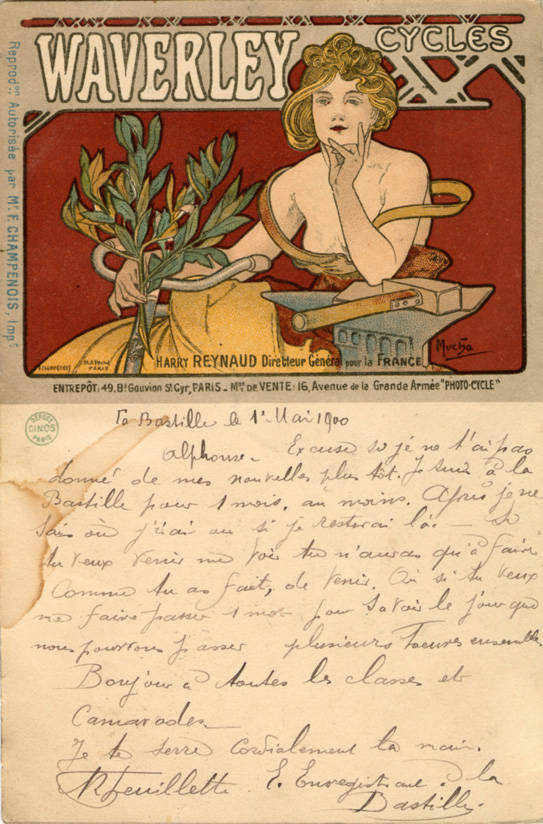 WAVERLEY
CYCLES
Reprod.on Autorisée par Mr. F. CHAMPENOIS, Imp.r
F. CHAMPENOIS PARIS
Mucha
HARRY REYNAUD Directeur Général pour la FRANCE
ENTREPÔT: 49. Bd Gouvion St Cyr, PARIS _ Mon DE VENTE: 16, Avenue de la Grande Armée "PHOTO-CYCLE"
DÉPOSÉ
CINOS
PARIS
La Bastille le 1er Mai 1900
Alphonse - Excuse si je ne t'ai pas
donné de mes nouvelles plus tôt. Je suis à la
Bastille pour 1 mois, au moins. Après je ne
sais où j'irai ou si je resterai là. - Si
tu veux venir me voir tu n'auras qu'à faire
comme tu as fait, de venir. Ou si tu veux
me faire passer 1 mot pour savoir le jour que
nous pourrons passer plusieurs heures ensemble
Bonjour à toutes les classes et
Camarades
Je te serre cordialement la main.
R Feuillette. E. Enregistrant à la
Bastille.